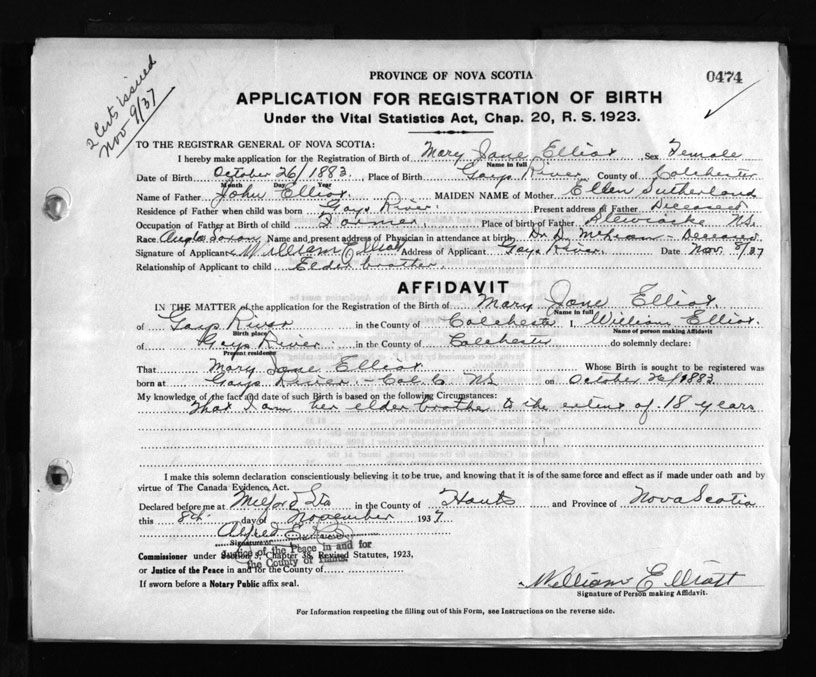 2 Certs issued
Nov 9/37
PROVINCE OF NOVA SCOTIA
0474
APPLICATION FOR REGISTRATION OF BIRTH
Under the Vital Statistics Act, Chap. 20, R. S. 1923.
TO THE REGISTRAR GENERAL OF NOVA SCOTIA:
I hereby make application for the Registration of Birth of Mary Jane Elliot Sex Female
Name in full
Date of Birth October 26/1883 Place of Birth Gays River County of Colchester
Month Day Year
Name of Father John Elliot MAIDEN NAME of Mother Ellen Sutherland
Residence of Father when child was born Gays River Present address of Father Deceased
Occupation of Father at Birth of child Farmer Place of birth of Father NS.
Race Anglo Saxon Name and present address of Physician in attendance at birth Dr. D. McLean - Deceased
Signature of Applicant William Elliott Address of Applicant Gays River. Date Nov. 8/37
Relationship of Applicant to child Elder brother.
AFFIDAVIT
IN THE MATTER of the application for the Registration of the Birth of Mary Jane Elliot.
Name in full
of Gays River in the County of Colchester I, William Elliot.
Birth place Name of person making Affidavit
of Gays River in the County of Colchester do solemnly declare:
Present residence
That Mary Jane Elliot Whose Birth is sought to be registered was
born at Gays River - Col. Co NS on October 26/1883
My knowledge of the fact and date of such Birth is based on the following Circumstances:
That I am her elder brother to the extent of 18 years
I make this solemn declaration conscientiously believing it to be true, and knowing that it is of the same force and effect as if made under oath and by
virtue of The Canada Evidence Act.
Declared before me at Milford Sta in the County of Hants and Province of Nova Scotia
this 8th day of November 1937
Alfred
Signature
Justice of the Peace in and for
the County of Hants.
Commissioner under Section 3, Chapter 38, Revised Statutes, 1923,
or Justice of the Peace in and for the County of
If sworn before a Notary Public affix seal.
William Elliott
Signature of Person making Affidavit.
For Information respecting the filling out of this Form, see Instructions on the reverse side.